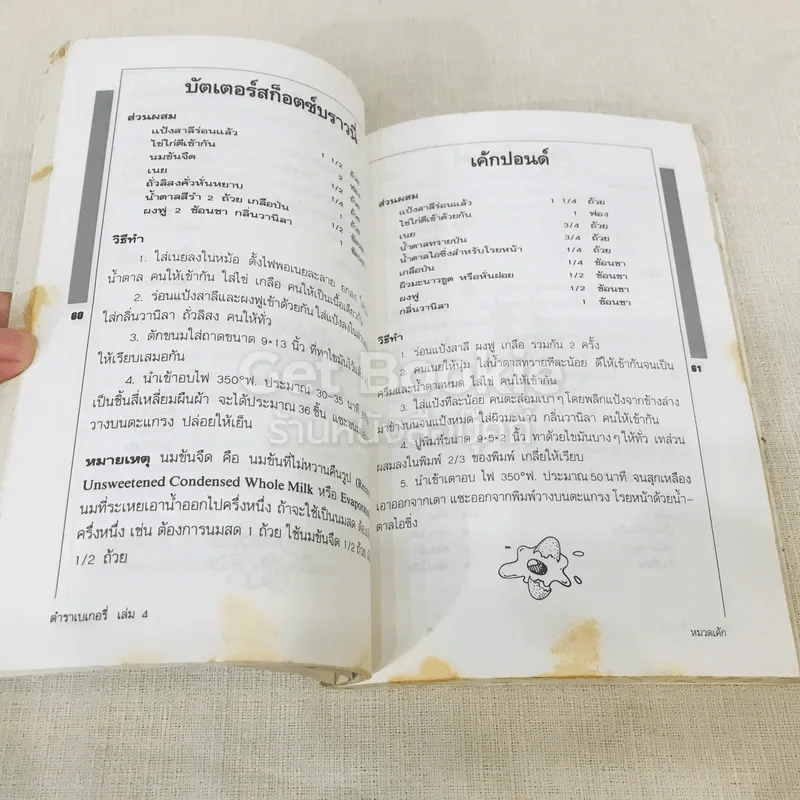 บัตเตอร์สก็อตช์บราวนี่
ส่วนผสม
แป้งสาลีร่อนแล้ว 1 1/2 ถ้วย
ไข่ไก่ตีเข้ากัน 2 ฟอง
นมข้นจืด 1/4 ถ้วย
เนย 1/2 ถ้วย
ถั่วลิสงคั่วหั่นหยาบ 1 ถ้วย
น้ำตาลสีรำ 2 ถ้วย เกลือป่น 1/4
ผงฟู 2 ช้อนชา กลิ่นวานิลา 1
วิธีทำ
1. ใส่เนยลงในหม้อ ตั้งไฟพอเนยละลาย ยกลง
น้ำตาล คนให้เข้ากัน ใส่ไข่ เกลือ คนให้เป็นเนื้อเดียวกัน
2. ร่อนแป้งสาลีและผงฟูเข้าด้วยกัน ใส่แป้งลงใน
ใส่กลิ่นวานิลา ถั่วลิสง คนให้ทั่ว
3. ตักขนมใส่ถาดขนาด 9×13 นิ้ว ที่ทาไขมันไว้แล้ว
ให้เรียบเสมอกัน
4. นำเข้าอบไฟ 350°ฟ. ประมาณ 30-35 นาที
เป็นชิ้นสี่เหลี่ยมผืนผ้า จะได้ประมาณ 36 ชิ้น แซะขนม
วางบนตะแกรง ปล่อยให้เย็น
หมายเหตุ นมข้นจืด คือ นมข้นที่ไม่หวานคืนรูป
Unsweetened Condensed Whole Milk หรือ
นมที่ระเหยเอาน้ำออกไปครึ่งหนึ่ง ถ้าจะใช้เป็นนมสด
ครึ่งหนึ่ง เช่น ต้องการนมสด 1 ถ้วย ใช้นมข้นจืด 1/2 ถ้วย
1/2 ถ้วย
60
ตำราเบเกอรี่ เล่ม 4
เค้กปอนด์
ส่วนผสม
แป้งสาลีร่อนแล้ว 1 1/4 ถ้วย
ไข่ไก่ตีเข้าด้วยกัน 1 ฟอง
เนย 3/4 ถ้วย
น้ำตาลทรายป่น 3/4 ถ้วย
น้ำตาลไอซิ่งสำหรับโรยหน้า 1/4 ถ้วย
เกลือป่น 1/4 ช้อนชา
ผิวมะนาวขูด หรือหั่นฝอย 1/2 ช้อนชา
ผงฟู 1/2 ช้อนชา
กลิ่นวานิลา 1 ช้อนชา
วิธีทำ
1. ร่อนแป้งสาลี ผงฟู เกลือ รวมกัน 2 ครั้ง
2. คนเนยให้นุ่ม ใส่น้ำตาลทรายทีละน้อย ตีให้เข้ากันจนเป็น
ครีมและน้ำตาลหมด ใส่ไข่ คนให้เข้ากัน
3. ใส่แป้งทีละน้อย คนตะล่อมเบาๆ โดยพลิกแป้งจากข้างล่าง
มาข้างบนจนแป้งหมด ใส่ผิวมะนาว กลิ่นวานิลา คนให้เข้ากัน
4. ปูพิมพ์ขนาด 9×5×2 นิ้ว ทาด้วยไขมันบางๆ ให้ทั่ว เทส่วน
ผสมลงในพิมพ์ 2/3 ของพิมพ์ เกลี่ยให้เรียบ
5. นำเข้าเตาอบ ไฟ 350°ฟ. ประมาณ 50 นาที จนสุกเหลือง
เอาออกจากเตา แซะออกจากพิมพ์วางบนตะแกรง โรยหน้าด้วยน้ำ-
ตาลไอซิ่ง
61
หมวดเค้ก